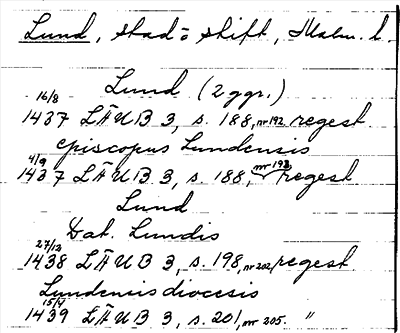 Lund, stad o stift, Malm. l.
Lund (2 ggr.)
16/8
1437 LÄUB 3, s. 188, nr 192. regest
episcopus Lundensis
4/9
1437 LÄUB 3, s. 188, nr 193, regest
Lund
Dat. Lundis
27/12
1438 LÄUB 3, s. 198, nr 202, regest.
Lundensis diocesis
15/4
1439 LÄUB 3, s. 201, nr 205. "